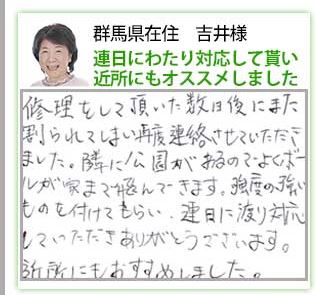 群馬県在住 吉井様
連日にわたり対応して貰い
近所にもオススメしました
修理をして頂いた数日後にまた
割られてしまい再度連絡させていただき
ました。隣に公園があるのでよくボー
ルが家まで飛んできます。強度の強い
ものを付けてもらい、連日に渡り対応
していただきありがとうございます。
近所にもおすすめしました。